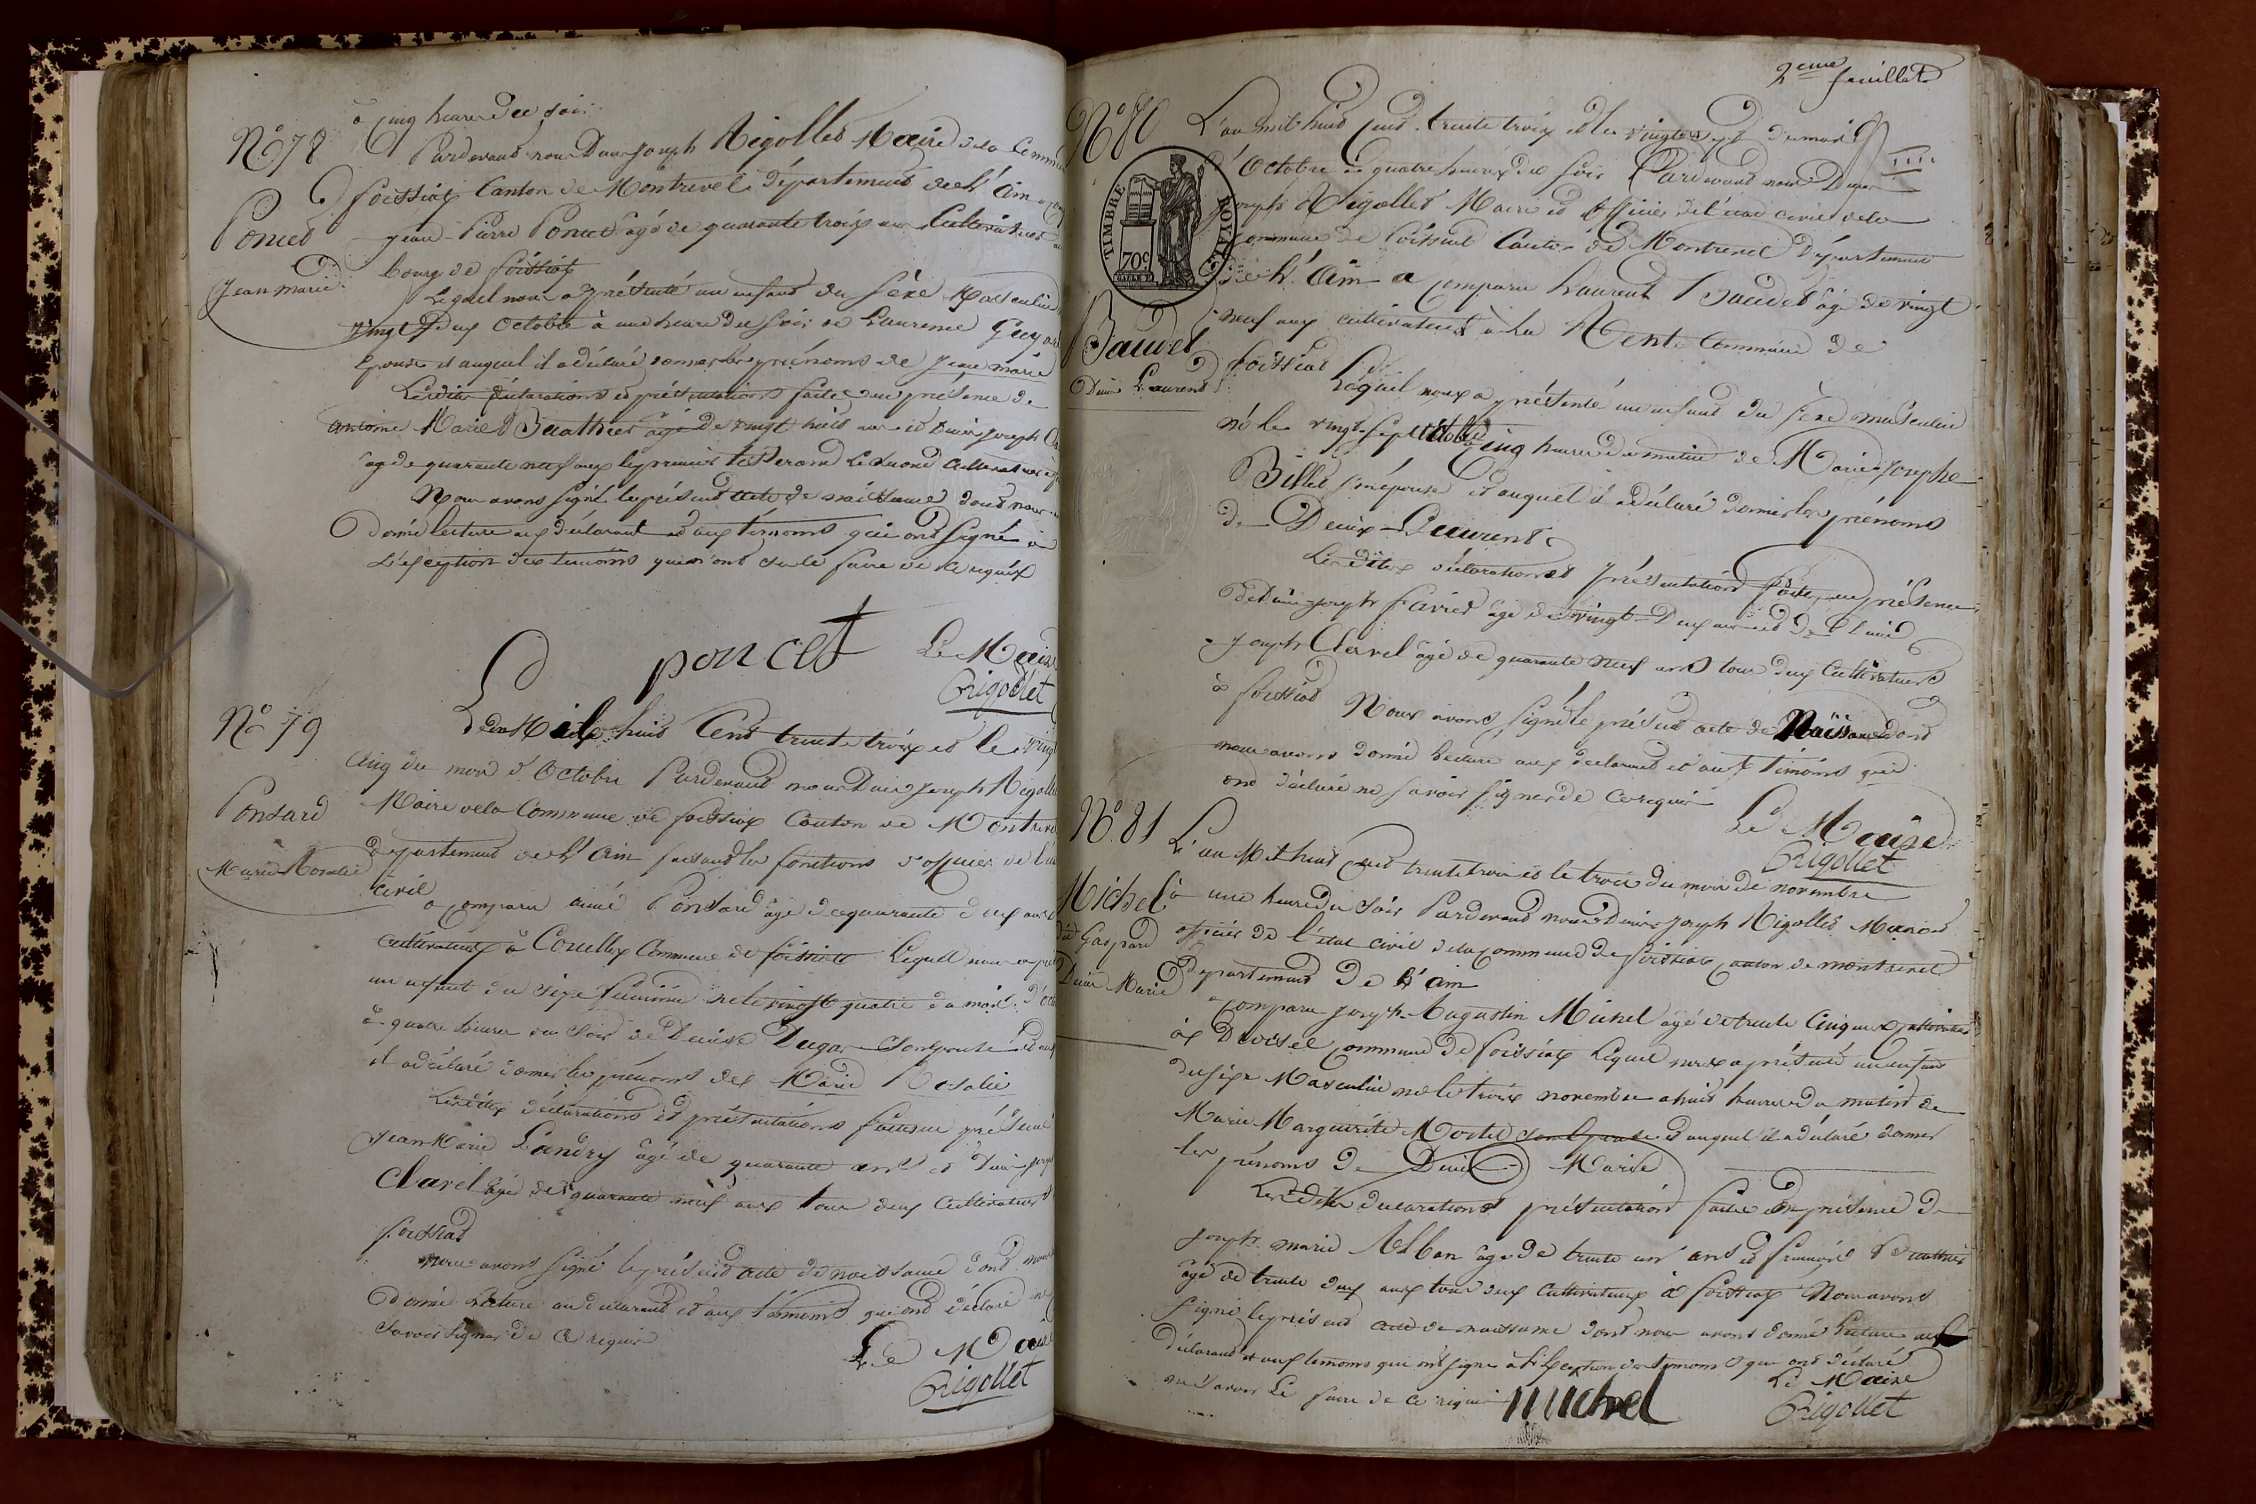 à cinq heures du soir
N° 78
Pardevant nous Denis Joseph Rigollet Maire de la Commune
foissiat Canton de Montrevel département de L'ain a
Poncet
Jean Pierre Poncet âgé de quarante trois ans Cultivateur au
Jean Marie
bourg de foissiat
Lequel nous a présenté un enfant du sexe Masculin
vingt deux octobre à une heure du soir de Laurence
épouse et auquel il a déclaré donner les prénoms de Jean marie
Lesdites déclarations et présentations faites en présence de
antoine Marie Beauthier âgé de vingt huit ans et Denis Joseph
âgé de quarante neuf ans le premier le second Cultivateur
Nous avons signé le présent acte de naissance dont nous
donné lecture aux déclarant et aux témoins qui ont signé à
L'exception des temoins qui n'ont su le faire de ce requis
poncet Le Maire
Rigollet
N° 79
L'an Mil huit Cent trente trois et le vingt
cinq du mois d'Octobre Pardevant nous Denis Joseph Rigollet
Ponsard
Maire de la Commune de foissiat Canton de Montrevel
département de L'ain faisant les fonctions d'officier de l'état
Marie Rosalie
civil
a comparu aimé Ponsard âgé de quarante deux ans
cultivateur à Commune de foissiat Lequel nous a
un enfant du sexe féminin né le vingt quatre du mois d'
à quatre heures du soir de Denise Dugas Son épouse et
il a déclaré donner les prénoms de Marie Rosalie
Lesdites déclarations et présentations faites en présence
Jean Marie Landry âgé de quarante ans et Denis Joseph
Clavel âgé de quarante neuf ans tous deux Cultivateurs
foissiat
nous avons signé le présent acte de naissance dont nous
donné Lecture au déclarant et aux témoins qui ont déclaré ne
savoir signer de ce requis
Le Maire
Rigollet
2eme feuillet
N° 80
L'an mil huit Cent trente trois et le vingt sept du mois
d'Octobre à quatre heures du soir Pardevant nous Denis
Joseph Rigollet Maire et officier de l'état civil de la
Commune de foissiat Canton de Montrevel Département
TIMBRE ROYAL
70c
de L'Ain a Comparu Laurent Baudet âgé de vingt
neuf ans cultivateur à la Commune de
Baudet
Denis Laurent
foissiat
Lequel nous a présenté un enfant du sexe masculin
né le vingt sept octobre cinq heures du matin de Marie Josephe
Billet son épouse et auquel il a déclaré donner les prénoms
de Denis Laurent
Lesdites déclarations et présentations faites en présence
de Denis Joseph favier âgé de vingt Deux ans et de Denis
Joseph Clavel âgé de quarante neuf ans tous deux Cultivateurs
à foissiat Nous avons signé le présent acte de Naissance dont
nous avons donné Lecture aux déclarant et aux témoins qui
ont déclaré ne savoir signer de ce requis
Le Maire
Rigollet
N° 81
L'an Mil huit Cent trente trois et le trois du mois de novembre
Michel
à une heure du soir Pardevant nous Denis Joseph Rigollet Maire et
dit Gaspard
officier de l'état civil de la commune de foissiat canton de montrevel
Denis Marie
departement de L'ain
a Comparu Joseph Augustin Michel âgé de trente cinq ans cultivateur
commune de foissiat Lequel nous a présenté un enfant
du sexe Masculin né le trois novembre a huit heures du matin de
Marie Marguerite son Epouse et auquel il a déclaré donner
les prénoms de Denis Marie
Lesdites déclarations présentation faites en présence de
Joseph marie Alban âgé de trente un ans et Beauthier
âgé de trente deux ans tous deux Cultivateurs à foissiat Nous avons
signé le présent acte de naissance dont nous avons donné Lecture aux
déclarant et aux temoins qui ont signé à L'exception des temoins qui ont déclaré
ne savoir Le faire de ce requis
michel
Le Maire
Rigollet